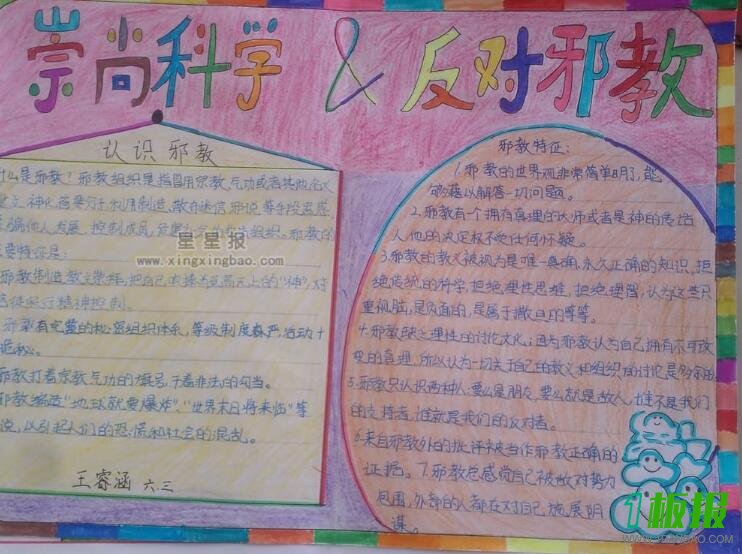 崇尚科学 & 反对邪教
认识邪教
什么是邪教?邪教组织是指冒用宗教、气功或者其他名义
建立、神化首要分子,利用制造、散布迷信邪说等手段蛊惑、
骗他人,发展、控制成员,危害社会的非法组织。邪教的
要特征是:
邪教制造教主崇拜,把自己 高 上的“神”,对
信徒实行精神控制。
邪教有完整的秘密组织体系,等级制度森严,活动十
诡秘。
邪教打着宗教气功的旗号,干着非法的勾当。
邪教编造“地球就要爆炸”、“世界末日将来临”等
说,以引起人们的恐慌和社会的混乱。
王睿涵 六.三
邪教特征:
1.邪教的世界观非常简单明了,能
够藉以解答一切问题。
2.邪教有一个拥有真理的大师或者是神的传话
人,他的决定权不受任何怀疑。
3.邪教的教义被视为是唯一真确、永久正确的知识,拒
绝传统的科学,拒绝理性思维,拒绝理智,认为这些只
重视脑,是负面的,是属于撒旦的等等。
4.邪教缺乏理性的讨论文化,因为邪教认为自己拥有不可改
变的真理,所以认为一切关于自己的教义和组织的讨论是多余的
5.邪教只认识两种人:要么是朋友,要么就是敌人,谁不是我们
的支持者,谁就是我们的反对者。
6.来自邪教外的批评被当作邪教正确的
证据。7.邪教总感觉自己被敌对势力
包围,外部的人都在对自己施展阴
谋。
星星报
www.xingxingbao.com
板报